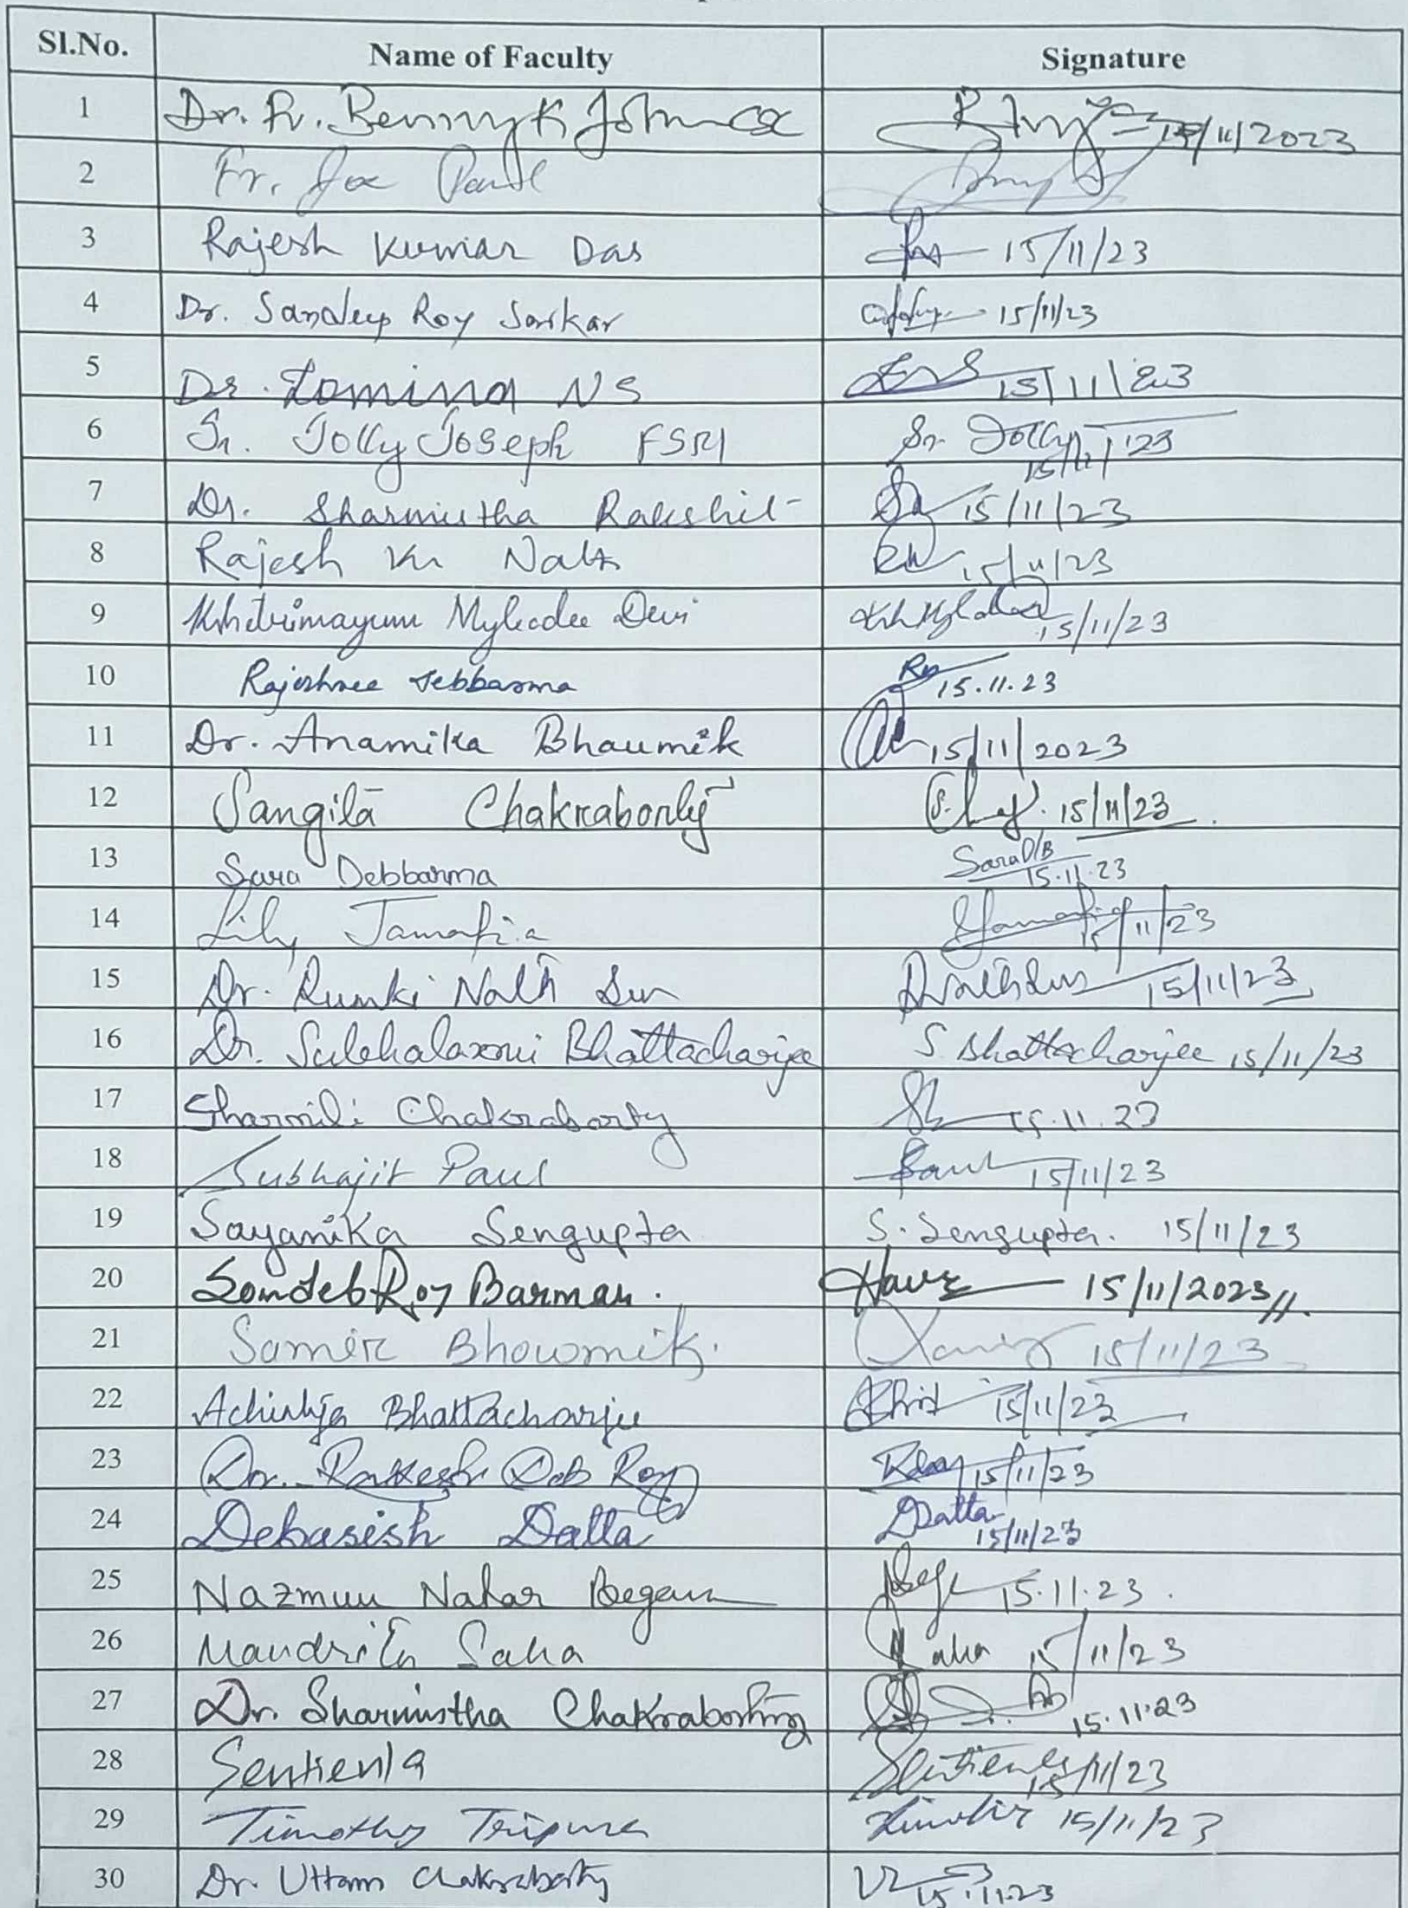 Sl.No. Name of Faculty Signature
1 Dr. Fr. Benny K John csc 15/11/2023
2 Fr. Joe Paul
3 Rajesh Kumar Das 15/11/23
4 Dr. Sandeep Roy Sarkar 15/11/23
5 Dr. Lomina NS 15/11/23
6 Sr. Jolly Joseph FSM Sr. Jolly 15/11/23
7 Dr. Sharmistha Rakshit 15/11/23
8 Rajesh Kr Nath 15/11/23
9 Khetrimayum Devi 15/11/23
10 Rajeshree Debbarma 15.11.23
11 Dr. Anamika Bhaumik 15/11/2023
12 Sangita Chakraborty 15/11/23
13 Sara Debbarma Sara D/B 15.11.23
14 Lily Jamatia 15/11/23
15 Dr. Rumki Nath 15/11/23
16 Dr. Sulekhalaxmi Bhattacharjee S. Bhattacharjee 15/11/23
17 Sharmili Chakraborty 15.11.23
18 Subhajit Paul Paul 15/11/23
19 Sayanika Sengupta S. Sengupta. 15/11/23
20 Somdeb Roy Barman. 15/11/2023
21 Samir Bhowmik. 15/11/23
22 Achintya Bhattacharjee 15/11/23
23 Dr. Rakesh Deb Roy 15/11/23
24 Debasish Datta DDatta 15/11/23
25 Nazmun Nahar Begam 15.11.23.
26 Mandrita Saha Saha 15/11/23
27 Dr. Sharmistha Chakraborty 15.11.23
28 Sentienla Sentienla 15/11/23
29 Timothy Tripura 15/11/23
30 Dr. Uttam Chakraborty 15.11.23